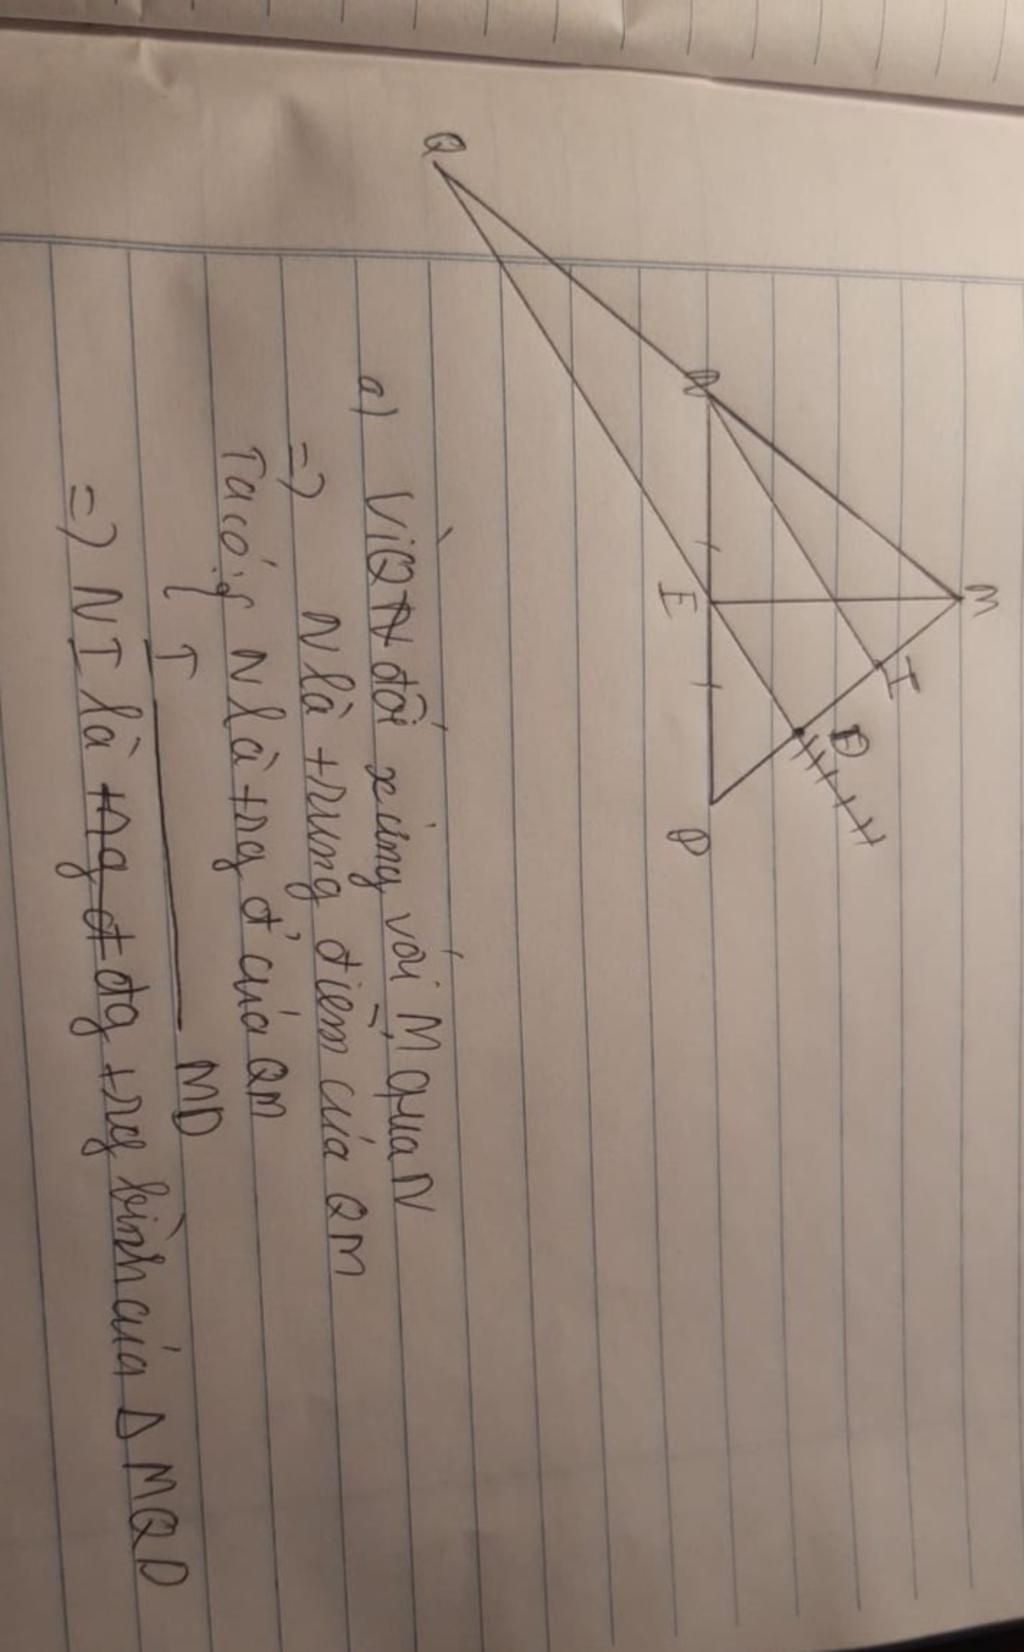 M
I
D
N
E
P
Q
a) Vì Q đối xứng với M qua N
=) N là trung điểm của QM
Ta có: { N là trg đ' của QM
I ——— MD
=) NI là đg trg bình của Δ MQD